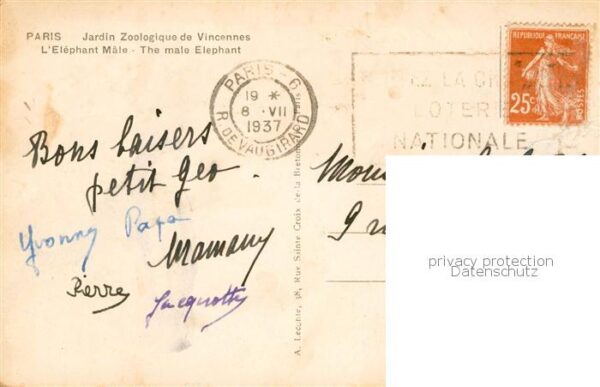 PARIS Jardin Zoologique de Vincennes
L'Eléphant Mâle - The male Elephant
PARIS - 6
19 *
8 - VII
1937
R. DE VAUGIRARD
LA
LOTERIE
NATIONALE
REPUBLIQUE FRANÇAISE
25c
POSTES
Bons baisers
petit Geo.
Yvonny Papa
Mamany
Pierre
Jacquotte
A. Leconte, 38, Rue Sainte Croix de la Bretonnerie, Paris
9
privacy protection
Datenschutz